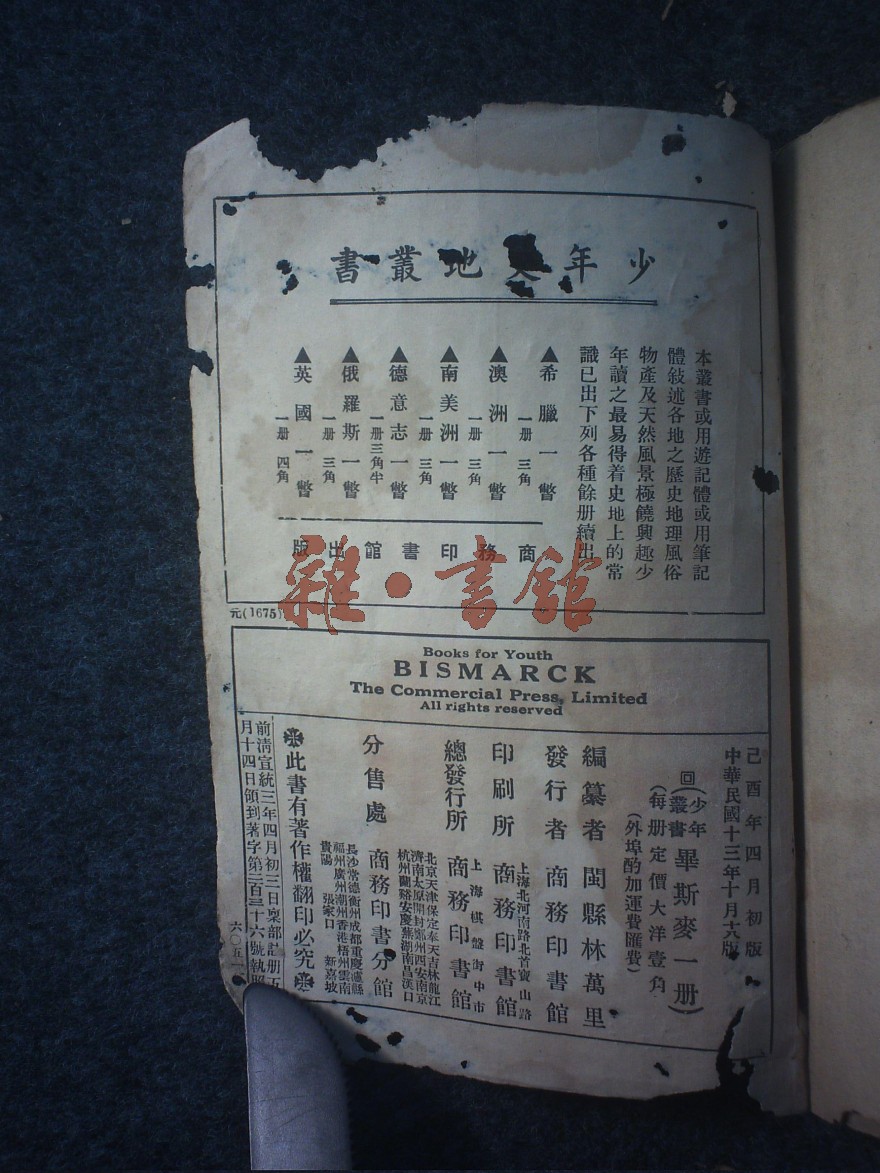 少年天地叢書
本叢書或用遊記體或用筆記
體敍述各地之歷史地理風俗
物產及天然風景極饒興趣少
年讀之最易得着史地上的常
識已出下列各種餘册續出
▲希臘一瞥
一册 三角
▲澳洲一瞥
一册 三角
▲南美洲一瞥
一册 三角
▲德意志一瞥
一册 三角半
▲俄羅斯一瞥
一册 三角
▲英國一瞥
一册 四角
商務印書館出版
雜·書館
元(1675)
Books for Youth
BISMARCK
The Commercial Press, Limited
All rights reserved
己酉年四月初版
中華民國十三年十月六版
回(少年叢書 畢斯麥一册)
(每册定價大洋壹角)
(外埠酌加運費匯費)
編纂者 閩縣林萬里
發行者 商務印書館
上海北河南路北首寶山路
印刷所 商務印書館
上海棋盤街中市
總發行所 商務印書館
北京天津保定奉天吉林龍江
濟南太原開封鄭州西安南京
杭州蘭谿安慶蕪湖南昌漢口
分售處 商務印書分館
長沙常德衡州成都重慶瀘縣
福州廣州潮州香港梧州雲南
貴陽 張家口 新嘉坡
此書有著作權翻印必究
前清宣統三年四月初三日稟部註册五
月十四日領到著字第三百三十六號執照
六〇五一